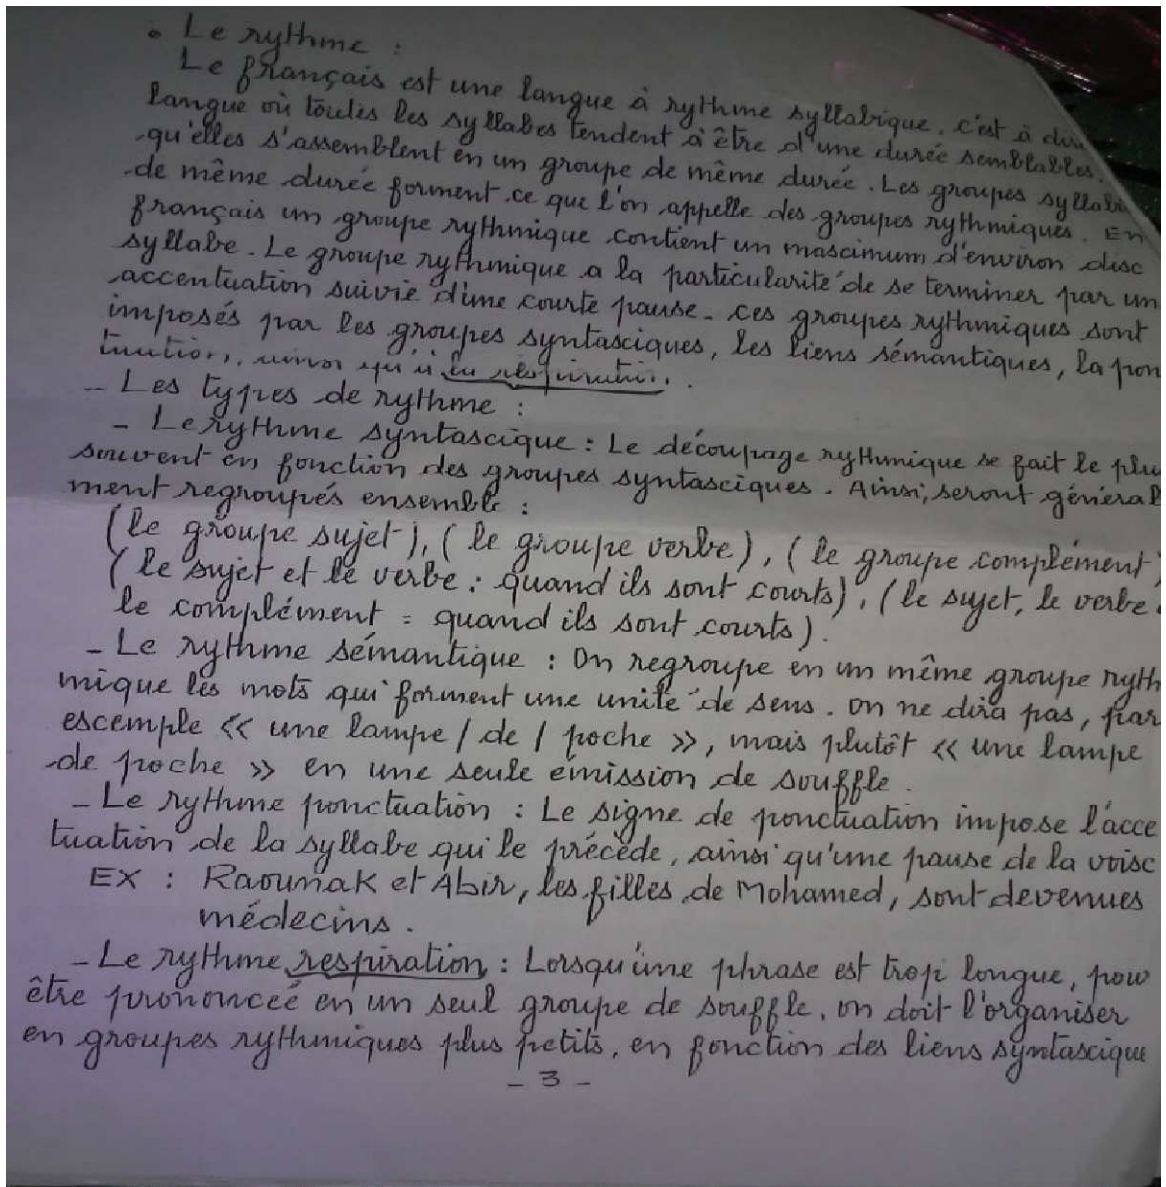 • Le rythme :
Le français est une langue à rythme syllabique, c'est à dire
langue où toutes les syllabes tendent à être d'une durée semblables.
qu'elles s'assemblent en un groupe de même durée. Les groupes syllabi
de même durée forment ce que l'on appelle des groupes rythmiques. En
français un groupe rythmique contient un mascimum d'environ disc
syllabe. Le groupe rythmique a la particularité de se terminer par un
accentuation suivie d'une courte pause. ces groupes rythmiques sont
imposés par les groupes syntasciques, les liens sémantiques, la pon
la respiration.
- Les types de rythme :
- Le rythme syntascique : Le découpage rythmique se fait le plu
souvent en fonction des groupes syntasciques. Ainsi, seront général
ment regroupés ensemble :
(le groupe sujet), (le groupe verbe), (le groupe complément)
(le sujet et le verbe : quand ils sont courts), (le sujet, le verbe
le complément : quand ils sont courts).
- Le rythme sémantique : On regroupe en un même groupe ryth
mique les mots qui forment une unité de sens. on ne dira pas, par
escemple << une lampe / de / poche >>, mais plutôt << une lampe
de poche >> en une seule émission de souffle.
- Le rythme ponctuation : Le signe de ponctuation impose l'acce
tuation de la syllabe qui le précède, ainsi qu'une pause de la voisc
EX : Raounak et Abir, les filles de Mohamed, sont devenues
médecins.
- Le rythme respiration : Lorsqu'une phrase est trop longue, pour
être prononceé en un seul groupe de souffle, on doit l'organiser
en groupes rythmiques plus petits, en fonction des liens syntascique
- 3 -